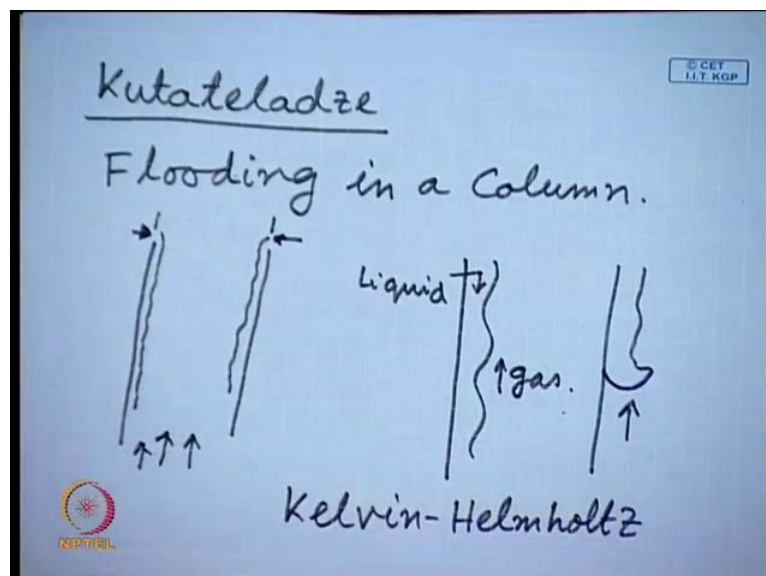 © CET
I.I.T. KGP
Kutateladze
Flooding in a Column.
Liquid
gas.
Kelvin-Helmholtz
NPTEL